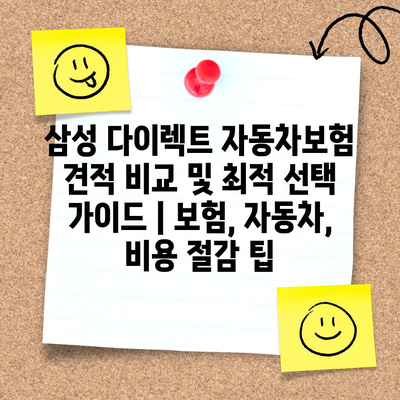 삼성 다이렉트 자동차보험
견적 비교 및 최적 선택
가이드 | 보험, 자동차,
비용 절감 팁